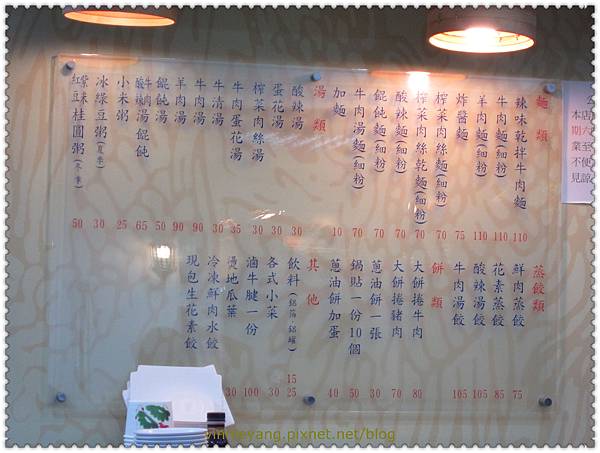 麵類
辣味乾拌牛肉麵 110
牛肉麵(細粉) 110
羊肉麵(細粉) 110
炸醬麵 75
榨菜肉絲麵(細粉) 70
榨菜肉絲乾麵(細粉) 70
酸辣麵(細粉) 70
餛飩麵(細粉) 70
牛肉湯麵(細粉) 70
加麵 10
湯類
酸辣湯 30
蛋花湯 30
榨菜肉絲湯 30
牛肉蛋花湯 35
牛清湯 30
牛肉湯 90
羊肉湯 90
餛飩湯 50
酸辣牛肉湯餛飩 65
小米粥 25
冰綠豆粥(夏季) 30
紅豆紫米桂圓粥(冬季) 50
蒸餃類
鮮肉蒸餃 75
花素蒸餃 85
酸辣湯餃 105
牛肉湯餃 105
餅類
大餅捲牛肉 80
大餅捲豬肉 70
蔥油餅一張 30
鍋貼一份10個 50
蔥油餅加蛋 40
其他
飲料(鋁箔‧鋁罐) 15 25
各式小菜 30
滷牛腱一份 100
燙地瓜葉 30
冷凍鮮肉水餃
現包生花素餃
本店
期六
業至
不便
見諒
yinreyang.pixnet.net/blog